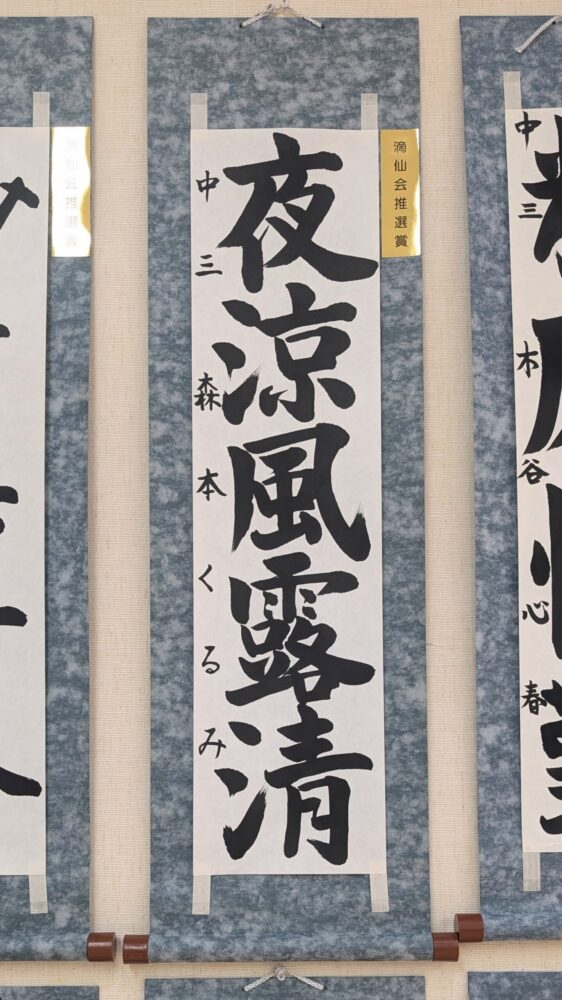 夜涼風露清
中三 森本くるみ
滴仙会推選賞
滴仙会推選賞
中三 木谷心春